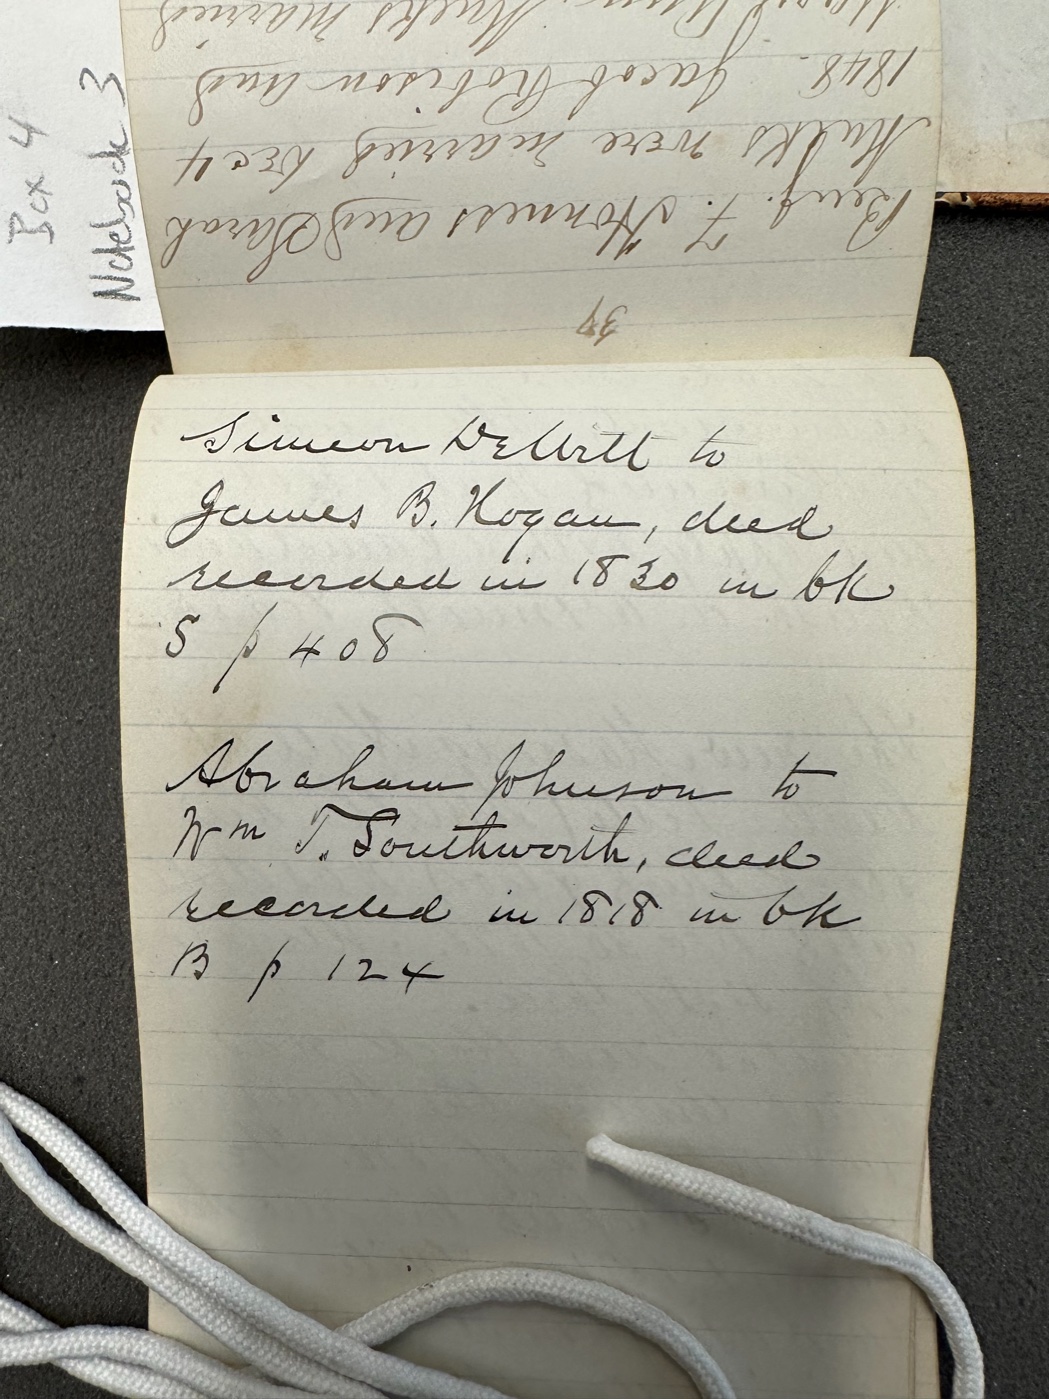 Box 4
Notebook 3
34
Benj. F. Honness and Sarah
Mulks were married Dec 4
1848. Jacob Robison and
Mulks married
Simeon DeWitt to
James B. Hogan, deed
recorded in 1830 in bk
S p 408
Abraham Johnson to
Wm T. Southworth, deed
recorded in 1818 in bk
B p 124